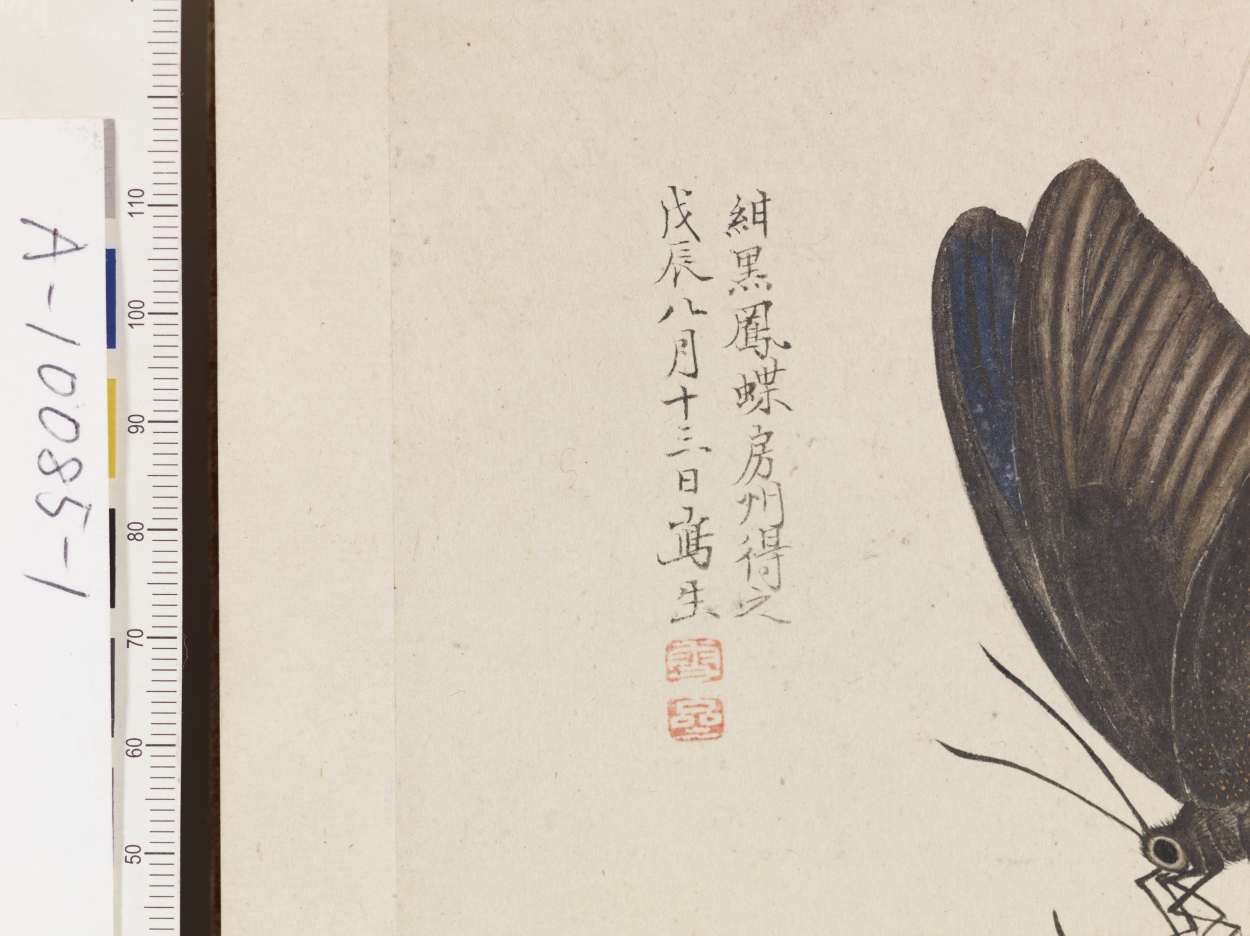 紺黒鳳蝶房州得之
戊辰八月十三日寫生
A-10085-1
110
100
90
80
70
60
50